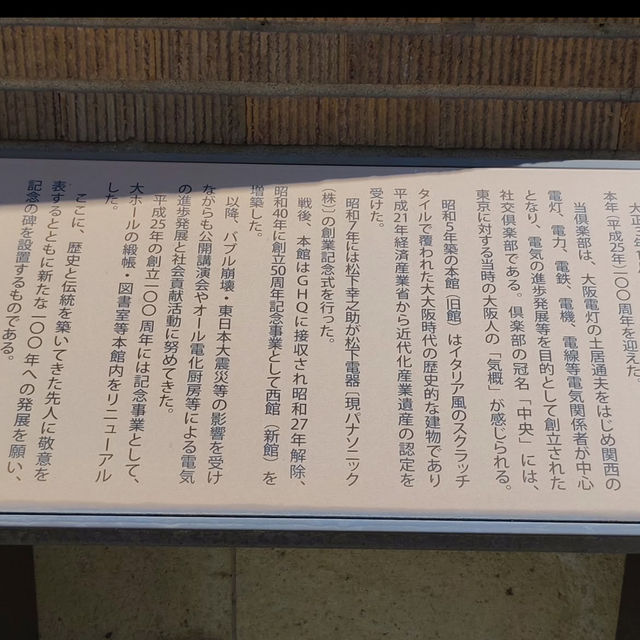 本年（平成25年）一〇〇周年を迎えた。
当倶楽部は、大阪電灯の土居通夫をはじめ関西の
電灯、電力、電鉄、電機、電線等電気関係者が中心
となり、電気の進歩発展等を目的として創立された
社交倶楽部である。倶楽部の冠名「中央」には、
東京に対する当時の大阪人の「気概」が感じられる。
昭和5年築の本館（旧館）はイタリア風のスクラッチ
タイルで覆われた大大阪時代の歴史的な建物であり
平成21年経済産業省から近代化産業遺産の認定を
受けた。
昭和7年には松下幸之助が松下電器〔現パナソニック
（株）〕の創業記念式を行った。
戦後、本館はGHQに接収され昭和27年解除、
昭和40年に創立50周年記念事業として西館（新館）を
増築した。
以降、バブル崩壊・東日本大震災等の影響を受け
ながらも公開講演会やオール電化厨房等による電気
の進歩発展と社会貢献活動に努めてきた。
平成25年の創立一〇〇周年には記念事業として、
大ホールの緞帳・図書室等本館内をリニューアル
した。
ここに、歴史と伝統を築いてきた先人に敬意を
表するとともに新たな一〇〇年への発展を願い、
記念の碑を設置するものである。